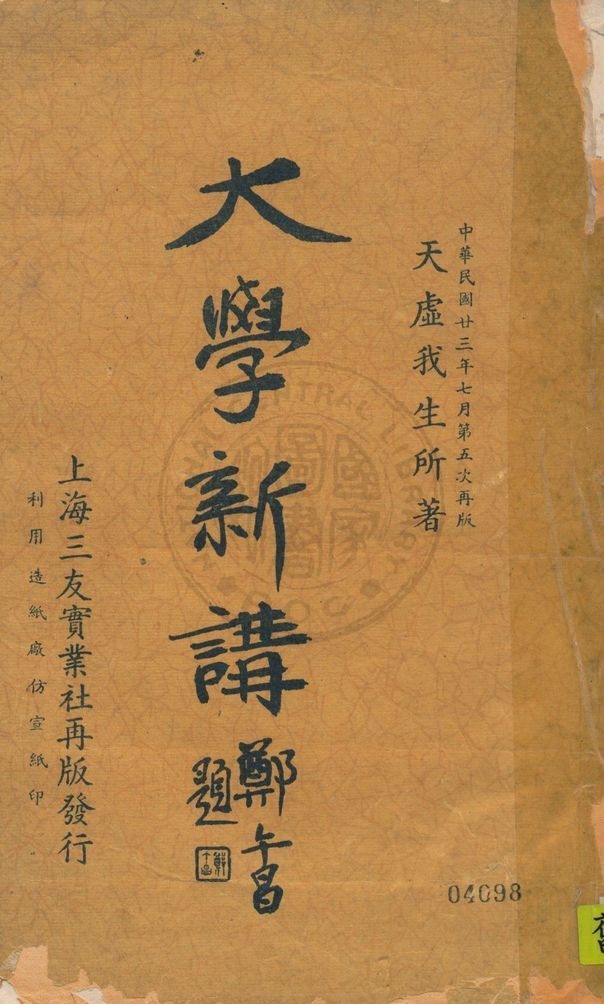 中華民國廿三年七月第五次再版
天虛我生所著
大學新講
鄭午昌
題
上海三友實業社再版發行
利用造紙廠仿宣紙印
04098